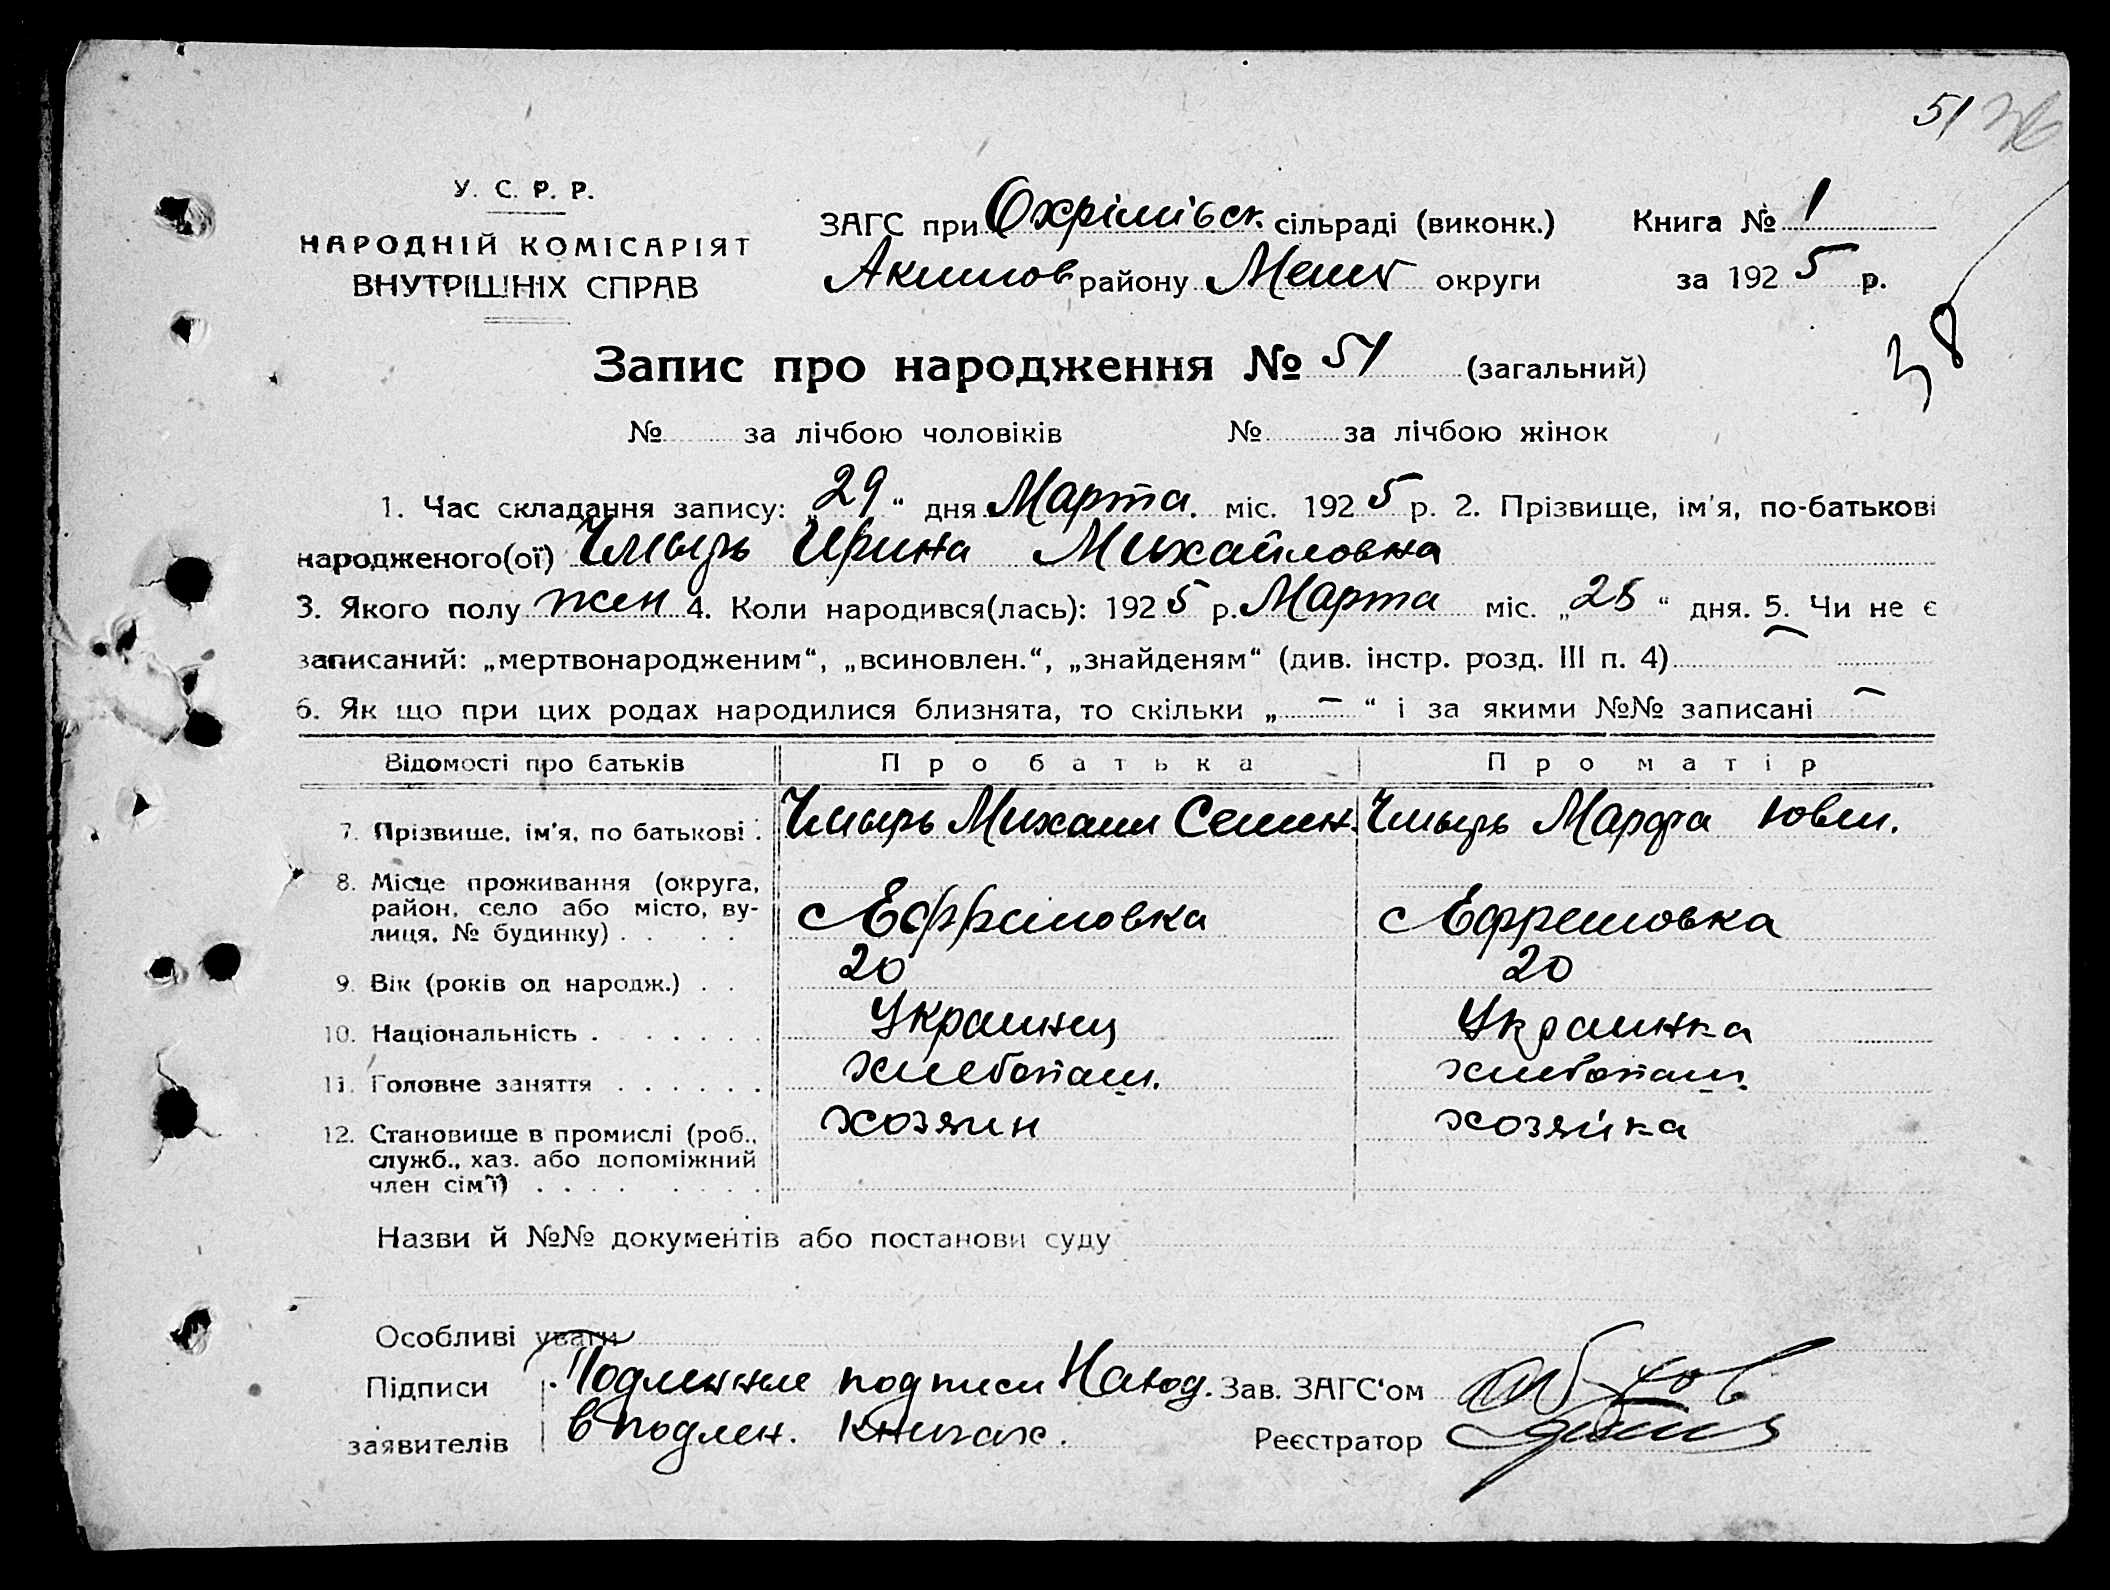 51
У. С. Р. Р.
НАРОДНІЙ КОМІСАРІЯТ
ВНУТРІШНІХ СПРАВ
ЗАГС при Охрімівск. сільраді (виконк.) Книга № 1
Акимов району Мелит округи за 1925 р.
38
Запис про народження № 51 (загальний)
№ за лічбою чоловіків № за лічбою жінок
1. Час складання запису: „29“ дня Марта. міс. 1925 р. 2. Прізвище, ім'я, по-батькові
народженого(ої) Чмырь Ирина Михайловна
3. Якого полу жен 4. Коли народився(лась): 1925 р. Марта міс. „28“ дня. 5. Чи не є
записаний: „мертвонародженим“, „всиновлен.“, „знайденям“ (див. інстр. розд. III п. 4) –
6. Як що при цих родах народилися близнята, то скільки „ – “ і за якими №№ записані –
Відомості про батьків Про батька Про матір
7. Прізвище, ім'я, по батькові . Чмырь Михаил Семен. Чмырь Марфа
8. Місце проживання (округа,
район, село або місто, ву-
лиця, № будинку) . . . . с Ефримовка с Ефремовка
9. Вік (років од народж.) . . 20 20
10. Національність . . . . . . . Украинец Украинка
11. Головне заняття . . . . . . хлебопаш. хлебопаш.
12. Становище в промислі (роб.,
служб., хаз. або допоміжний
член сім'ї) . . . . . . . . хозяин хозяйка
Назви й №№ документів або постанови суду
Особливі уваги
Підписи Подленние подписи Наход. Зав. ЗАГС'ом
заявителів в подлен. книгах. Реєстратор